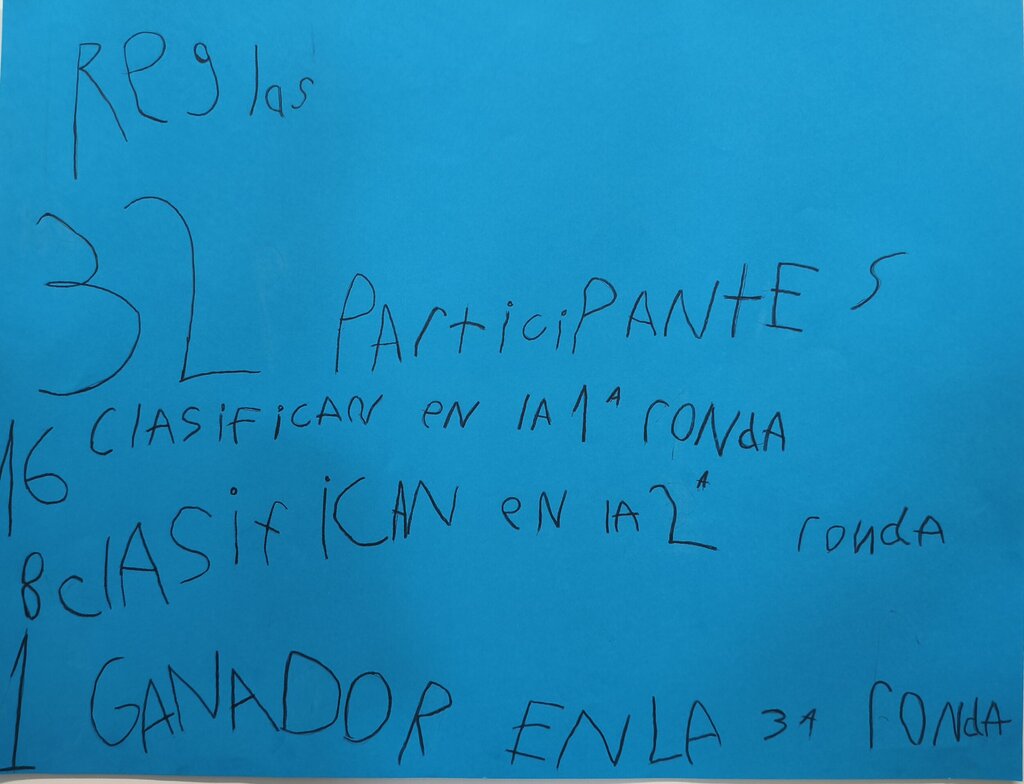 Reglas
32 PARticiPANtES
16 clASiFiCAN eN lA 1ª rONdA
8 clASifiCAN eN lA 2ª rondA
1 GANADOR EN LA 3ª rONdA